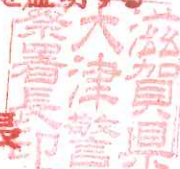 滋賀県
大津警
察署長印